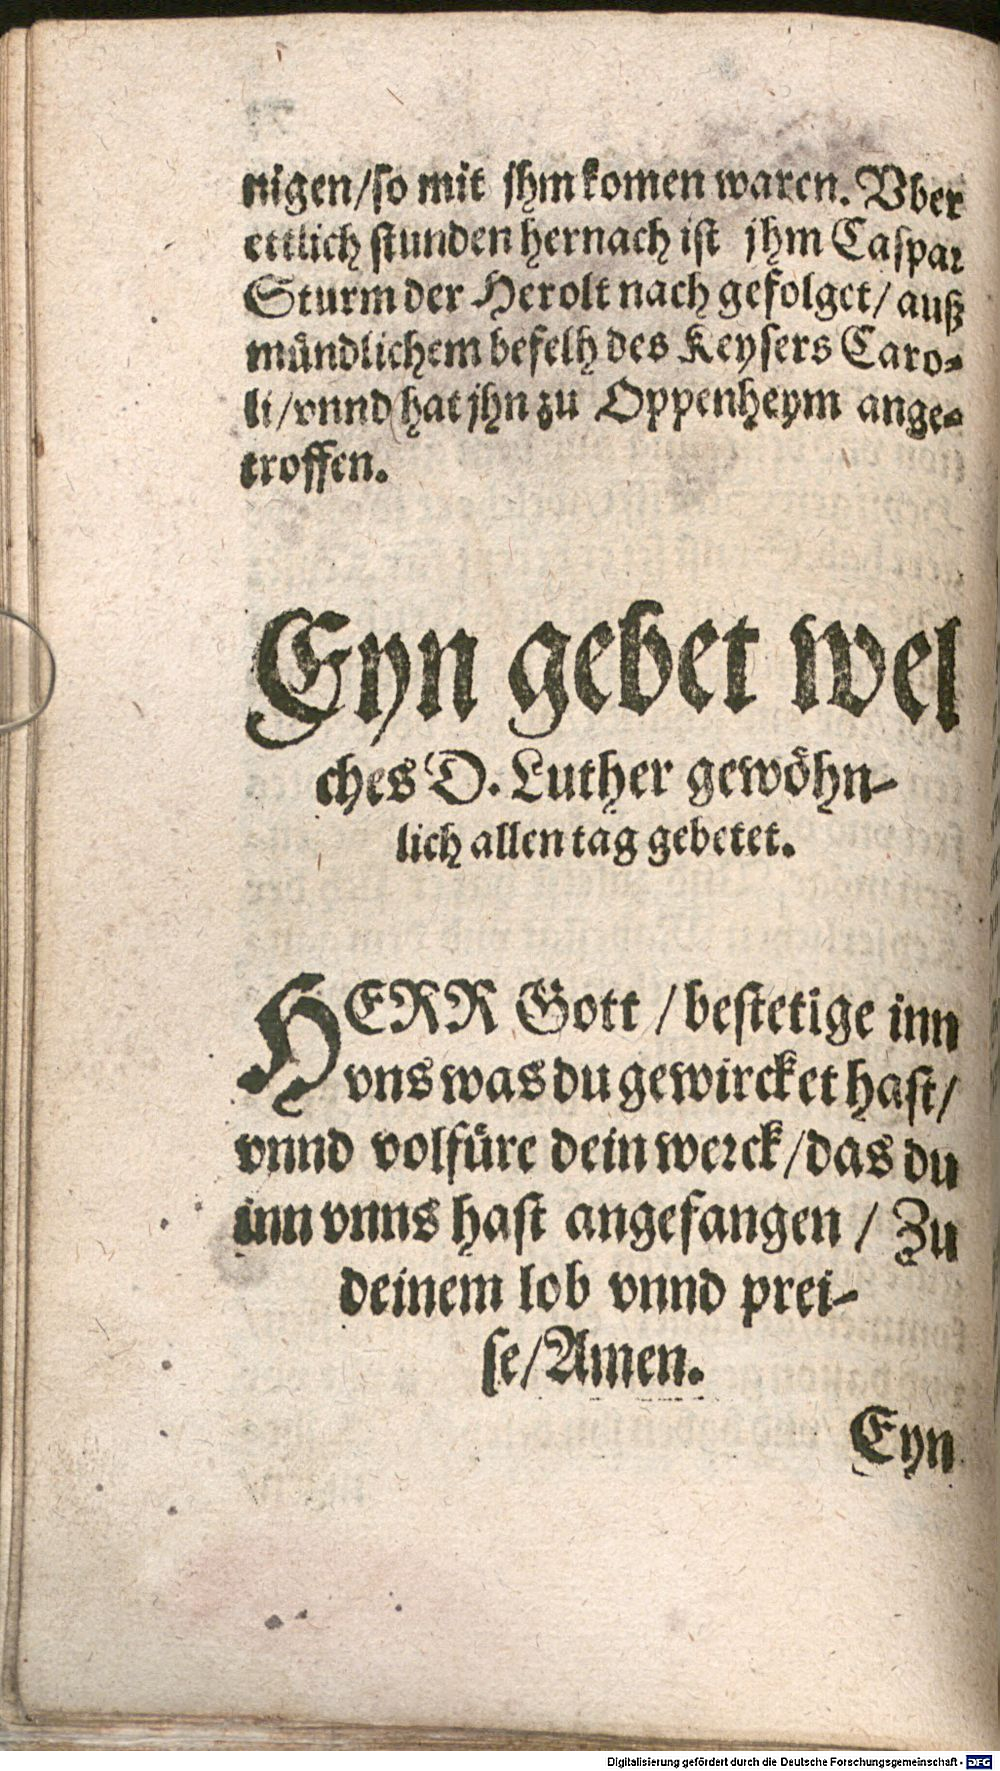 nigen/so mit jhm komen waren. Vber
ettlich stunden hernach ist jhm Caspar
Sturm der Herolt nach gefolget/ auß
mündlichem befelh des Keysers Caro-
li/vnnd hat jhn zu Oppenheym ange-
troffen.
Eyn gebet wel
ches D. Luther gewöhn-
lich allen tag gebetet.
HERR Gott / bestetige inn
vns was du gewircket hast/
vnnd volfüre dein werck/das du
inn vnns hast angefangen / Zu
deinem lob vnnd prei-
se/Amen.
Eyn
Digitalisierung gefördert durch die Deutsche Forschungsgemeinschaft - DFG